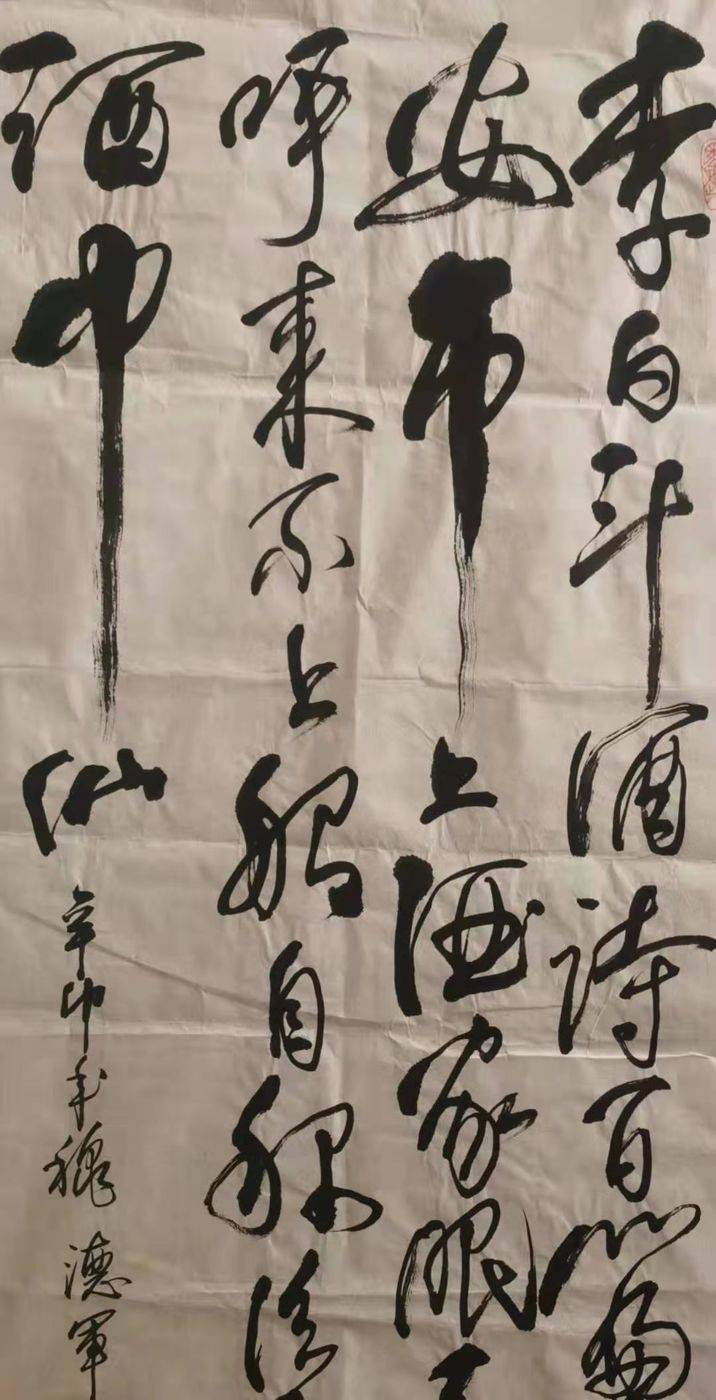 李白斗酒诗百篇
安市上酒家眠天
呼来不上船自称臣
酒中仙
辛卯年 德軍